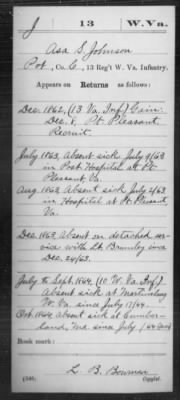 J | 13 | W.Va.
Asa S. Johnson
Pvt., Co. C, 13 Reg't W. Va. Infantry.
Appears on Returns as follows:
Dec. 1862, (13 Va. Inf.) Gain
Dec. 8, Pt. Pleasant,
Recruit.
July 1863, Absent sick July 9/63
in Post Hospital at Pt.
Pleasant, Va.
Aug. 1863, Absent sick July 2/63
in Hospital at Pt. Pleasant,
Va.
Dec. 1863, Absent on detached ser-
vice with Lt. Bromley since
Dec. 24/63.
July to Sept. 1864, (10 W. Va. Inf.)
Absent sick at Martinsburg
W. Va. since July 17/64.
Oct. 1864, Absent sick at Cumber-
land, Md. since July /64
Book mark:
L. B. Bowman
(546) Copyist.